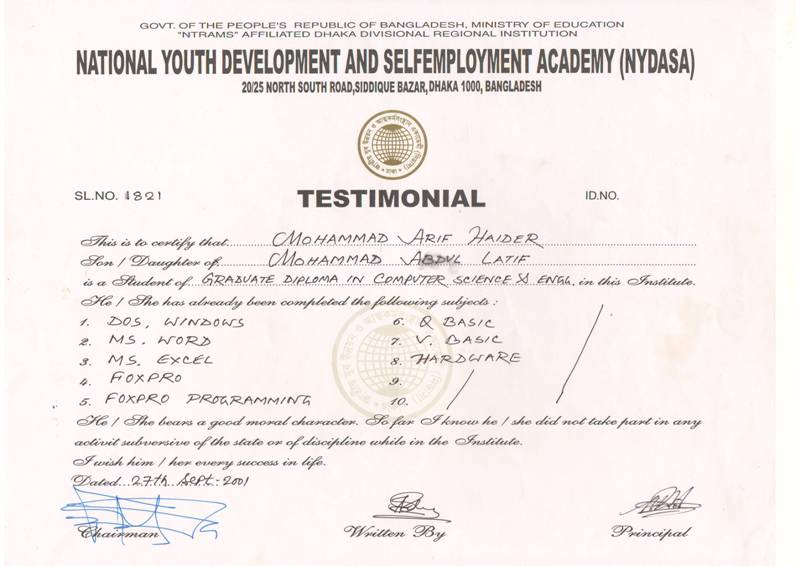 GOVT. OF THE PEOPLE'S REPUBLIC OF BANGLADESH, MINISTRY OF EDUCATION
"NTRAMS" AFFILIATED DHAKA DIVISIONAL REGIONAL INSTITUTION
NATIONAL YOUTH DEVELOPMENT AND SELFEMPLOYMENT ACADEMY (NYDASA)
20/25 NORTH SOUTH ROAD,SIDDIQUE BAZAR,DHAKA 1000, BANGLADESH
SL.NO. 1821
TESTIMONIAL
ID.NO.
This is to certify that MOHAMMAD ARIF HAIDER
Son / Daughter of MOHAMMAD ABDUL LATIF
is a Student of GRADUATE DIPLOMA IN COMPUTER SCIENCE & ENGG. in this Institute.
He / She has already been completed the following subjects :
1. DOS, WINDOWS
2. MS. WORD
3. MS. EXCEL
4. FOXPRO
5. FOXPRO PROGRAMMING
6. Q BASIC
7. V. BASIC
8. HARDWARE
9.
10.
He / She bears a good moral character. So far I know he / she did not take part in any
activit subversive of the state or of discipline while in the Institute.
I wish him / her every success in life.
Dated 27th Sept-2001
Chairman
Written By
Principal